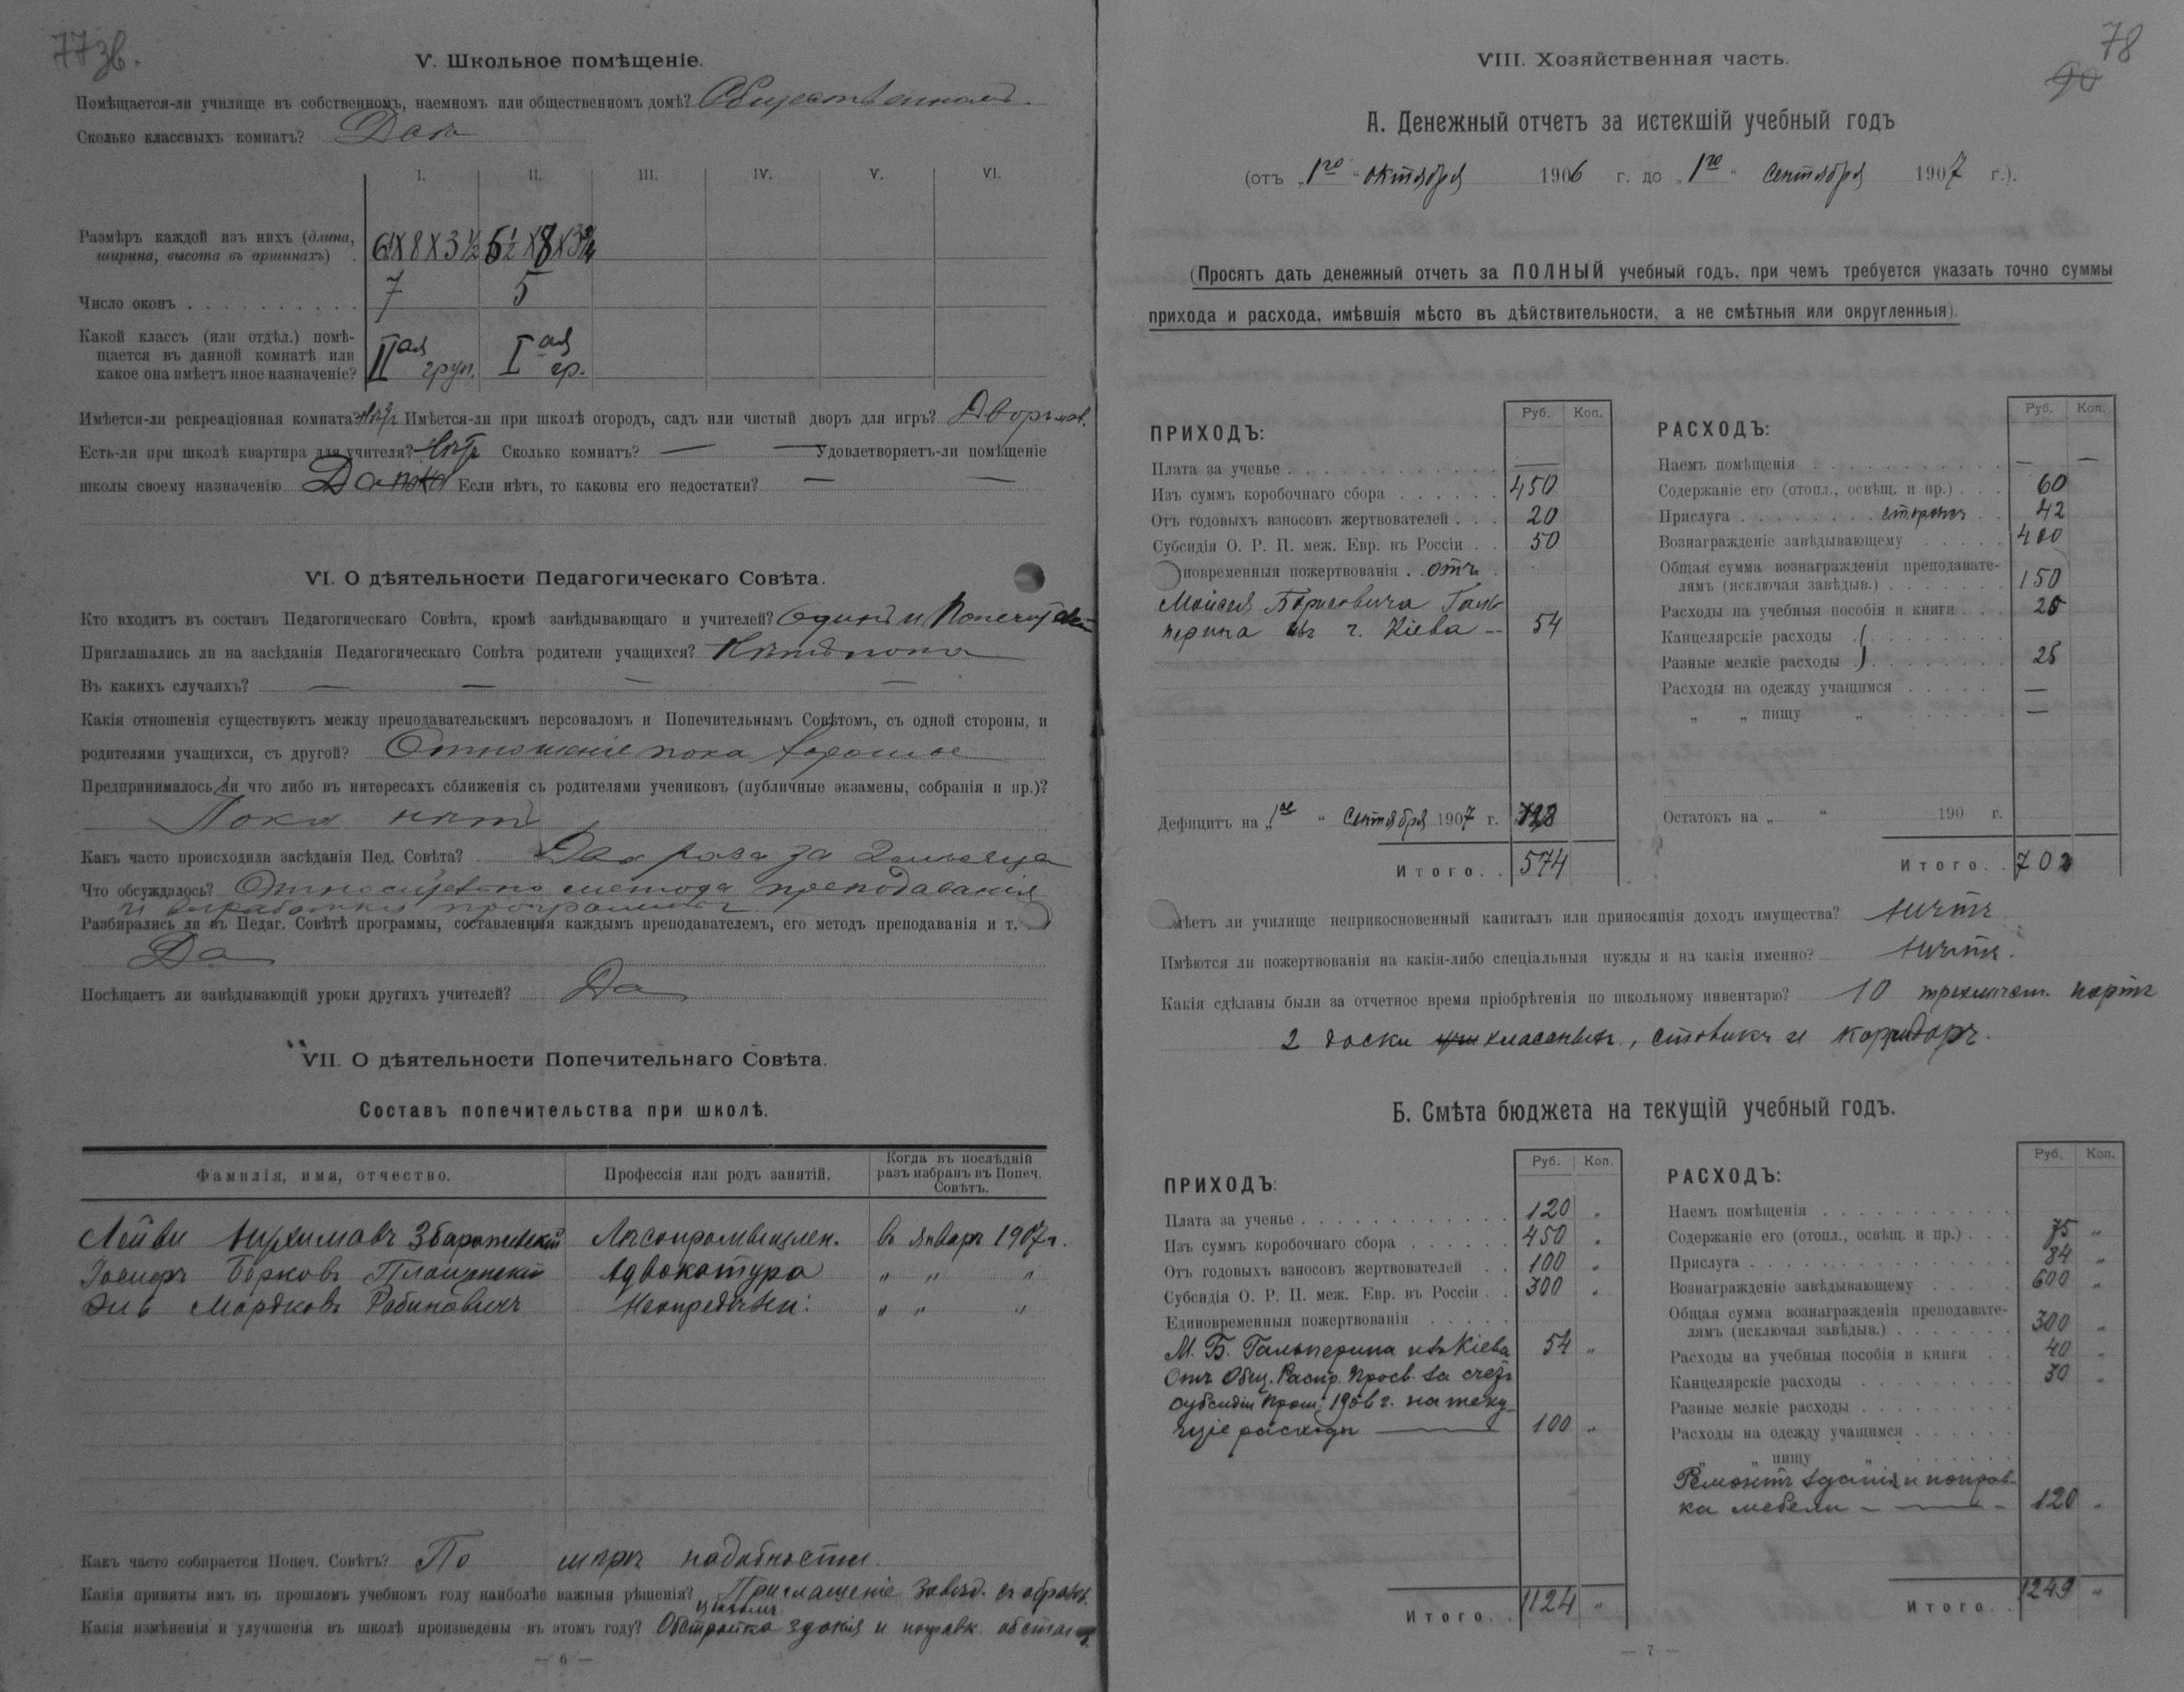 77 зв.
V. Школьное помѣщеніе.
Помѣщается-ли училище въ собственномъ, наемномъ или общественномъ домѣ? Общественномъ.
Сколько классныхъ комнатъ? Двѣ
I. II. III. IV. V. VI.
Размѣръ каждой изъ нихъ (длина,
ширина, высота въ аршинахъ) 8 X 3 ½ 6½ X 8 X 3¾
Число оконъ 7 5
Какой классъ (или отдѣл.) помѣ-
щается въ данной комнатѣ или
какое она имѣетъ иное назначеніе? II ая груп. I ая гр.
Имѣется-ли рекреаціонная комната? Нѣтъ Имѣется-ли при школѣ огородъ, садъ или чистый дворъ для игръ? Дворъ
Есть-ли при школѣ квартира для учителя? Нѣтъ Сколько комнатъ? — — Удовлетворяетъ-ли помѣщеніе
школы своему назначенію Да Если нѣтъ, то каковы его недостатки? — —
VI. О дѣятельности Педагогическаго Совѣта.
Кто входитъ въ составъ Педагогическаго Совѣта, кромѣ завѣдывающаго и учителей? Одинъ и
Приглашались ли на засѣданія Педагогическаго Совѣта родители учащихся? Нѣтъ пока
Въ какихъ случаяхъ? — — — —
Какія отношенія существуютъ между преподавательскимъ персоналомъ и Попечительнымъ Совѣтомъ, съ одной стороны, и
родителями учащихся, съ другой? Отношеніе пока хорошое
Предпринималось ли что либо въ интересахъ сближенія съ родителями учениковъ (публичные экзамены, собранія и пр.)?
Пока нѣтъ
Какъ часто происходили засѣданія Пед. Совѣта? Два раза за 2 мѣсяца
Что обсуждалось? Относительно метода преподаванія
и выработки программы
Разбирались ли въ Педаг. Совѣтѣ программы, составленныя каждымъ преподавателемъ, его методъ преподаванія и т.
Да
Посѣщаетъ ли завѣдывающій уроки другихъ учителей? Да
VII. О дѣятельности Попечительнаго Совѣта.
Составъ попечительства при школѣ.
Фамилія, имя, отчество. Профессія или родъ занятій. Когда въ послѣдній
разъ избранъ въ Попеч.
Совѣтъ.
Лейви Нухимовъ Збаражскій Лѣсопромышлен. въ январѣ 1907 г.
Іосифъ Берковъ Адвокатура " " "
Мордковъ Рабиновичъ Неопредѣлен: " " "
Какъ часто собирается Попеч. Совѣтъ? По мѣрѣ надобности.
Какія приняты имъ въ прошломъ учебномъ году наиболѣе важныя рѣшенія? Приглашеніе Завѣд. съ образов.
цензомъ
Какія измѣненія и улучшенія въ школѣ произведены въ этомъ году? Обстройка зданія и поправк.
— 6 —
78
90
VIII. Хозяйственная часть.
А. Денежный отчетъ за истекшій учебный годъ
(отъ „1го“ октября 1906 г. до „1го“ Сентября 1907 г.).
(Просятъ дать денежный отчетъ за ПОЛНЫЙ учебный годъ, при чемъ требуется указать точно суммы
прихода и расхода, имѣвшія мѣсто въ дѣйствительности, а не смѣтныя или округленныя).
ПРИХОДЪ: Руб. Коп.
Плата за ученье —
Изъ суммъ коробочнаго сбора 450
Отъ годовыхъ взносовъ жертвователей 20
Субсидія О. Р. П. меж. Евр. въ Россіи 50
новременныя пожертвованія отъ
Моисея Борисовича Галь-
перина изъ г. Кіева -- 54
Дефицитъ на „1ое“ Сентября 1907 г. 128
Итого 574
РАСХОДЪ: Руб. Коп.
Наемъ помѣщенія — —
Содержаніе его (отопл., освѣщ. и пр.) 60
Прислуга сторожъ 42
Вознагражденіе завѣдывающему 400
Общая сумма вознагражденія преподавате-
лямъ (исключая завѣдыв.) 150
Расходы на учебныя пособія и книги 25
Канцелярскіе расходы
Разные мелкіе расходы 25
Расходы на одежду учащимся —
„ „ пищу „ —
Остатокъ на „ “ 190 г.
Итого 702
мѣетъ ли училище неприкосновенный капиталъ или приносящія доходъ имущества? Нѣтъ
Имѣются ли пожертвованія на какія-либо спеціальныя нужды и на какія именно? Нѣтъ.
Какія сдѣланы были за отчетное время пріобрѣтенія по школьному инвентарю? 10 партъ
2 доски классныхъ, и корридоръ.
Б. Смѣта бюджета на текущій учебный годъ.
ПРИХОДЪ: Руб. Коп.
Плата за ученье 120 "
Изъ суммъ коробочнаго сбора 450 "
Отъ годовыхъ взносовъ жертвователей 100 "
Субсидія О. Р. П. меж. Евр. въ Россіи 300 "
Единовременныя пожертвованія
М. Б. Гальперина изъ Кіева 54 "
Отъ Общ. Распр. Просв. за счетъ
субсидіи прош. 1906 г. на теку-
щіе расходы — 100 "
Итого 1124 "
РАСХОДЪ: Руб. Коп.
Наемъ помѣщенія
Содержаніе его (отопл., освѣщ. и пр.) 75 "
Прислуга 84 "
Вознагражденіе завѣдывающему 600 "
Общая сумма вознагражденія преподавате-
лямъ (исключая завѣдыв.) 300 "
Расходы на учебныя пособія и книги 40 "
Канцелярскіе расходы 30 "
Разные мелкіе расходы
Расходы на одежду учащимся
„ „ пищу „
Ремонтъ зданія и поправ-
ка мебели — 120 "
Итого 1249 "
— 7 —